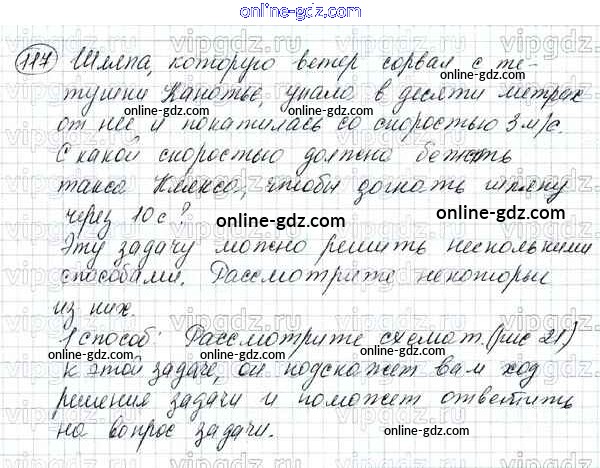 online-gdz.com
117 Шляпа, которую ветер сорвал с те-
тушки Капотье, упала в десяти метрах
online-gdz.com online-gdz.com
от нее и покатилась со скоростью 3 м/с.
С какой скоростью должна бежать
такса Клякса, чтобы догнать шляпу
online-gdz.com
через 10 с?
online-gdz.com
Эту задачу можно решить несколькими
способами. Рассмотрите некоторые
из них.
online-gdz.com
1 способ: Рассмотрите схемат. (рис 21)
online-gdz.com
к этой задаче, он подскажет вам ход
решения задачи и поможет ответить
online-gdz.com online-gdz.com
на вопрос задачи.